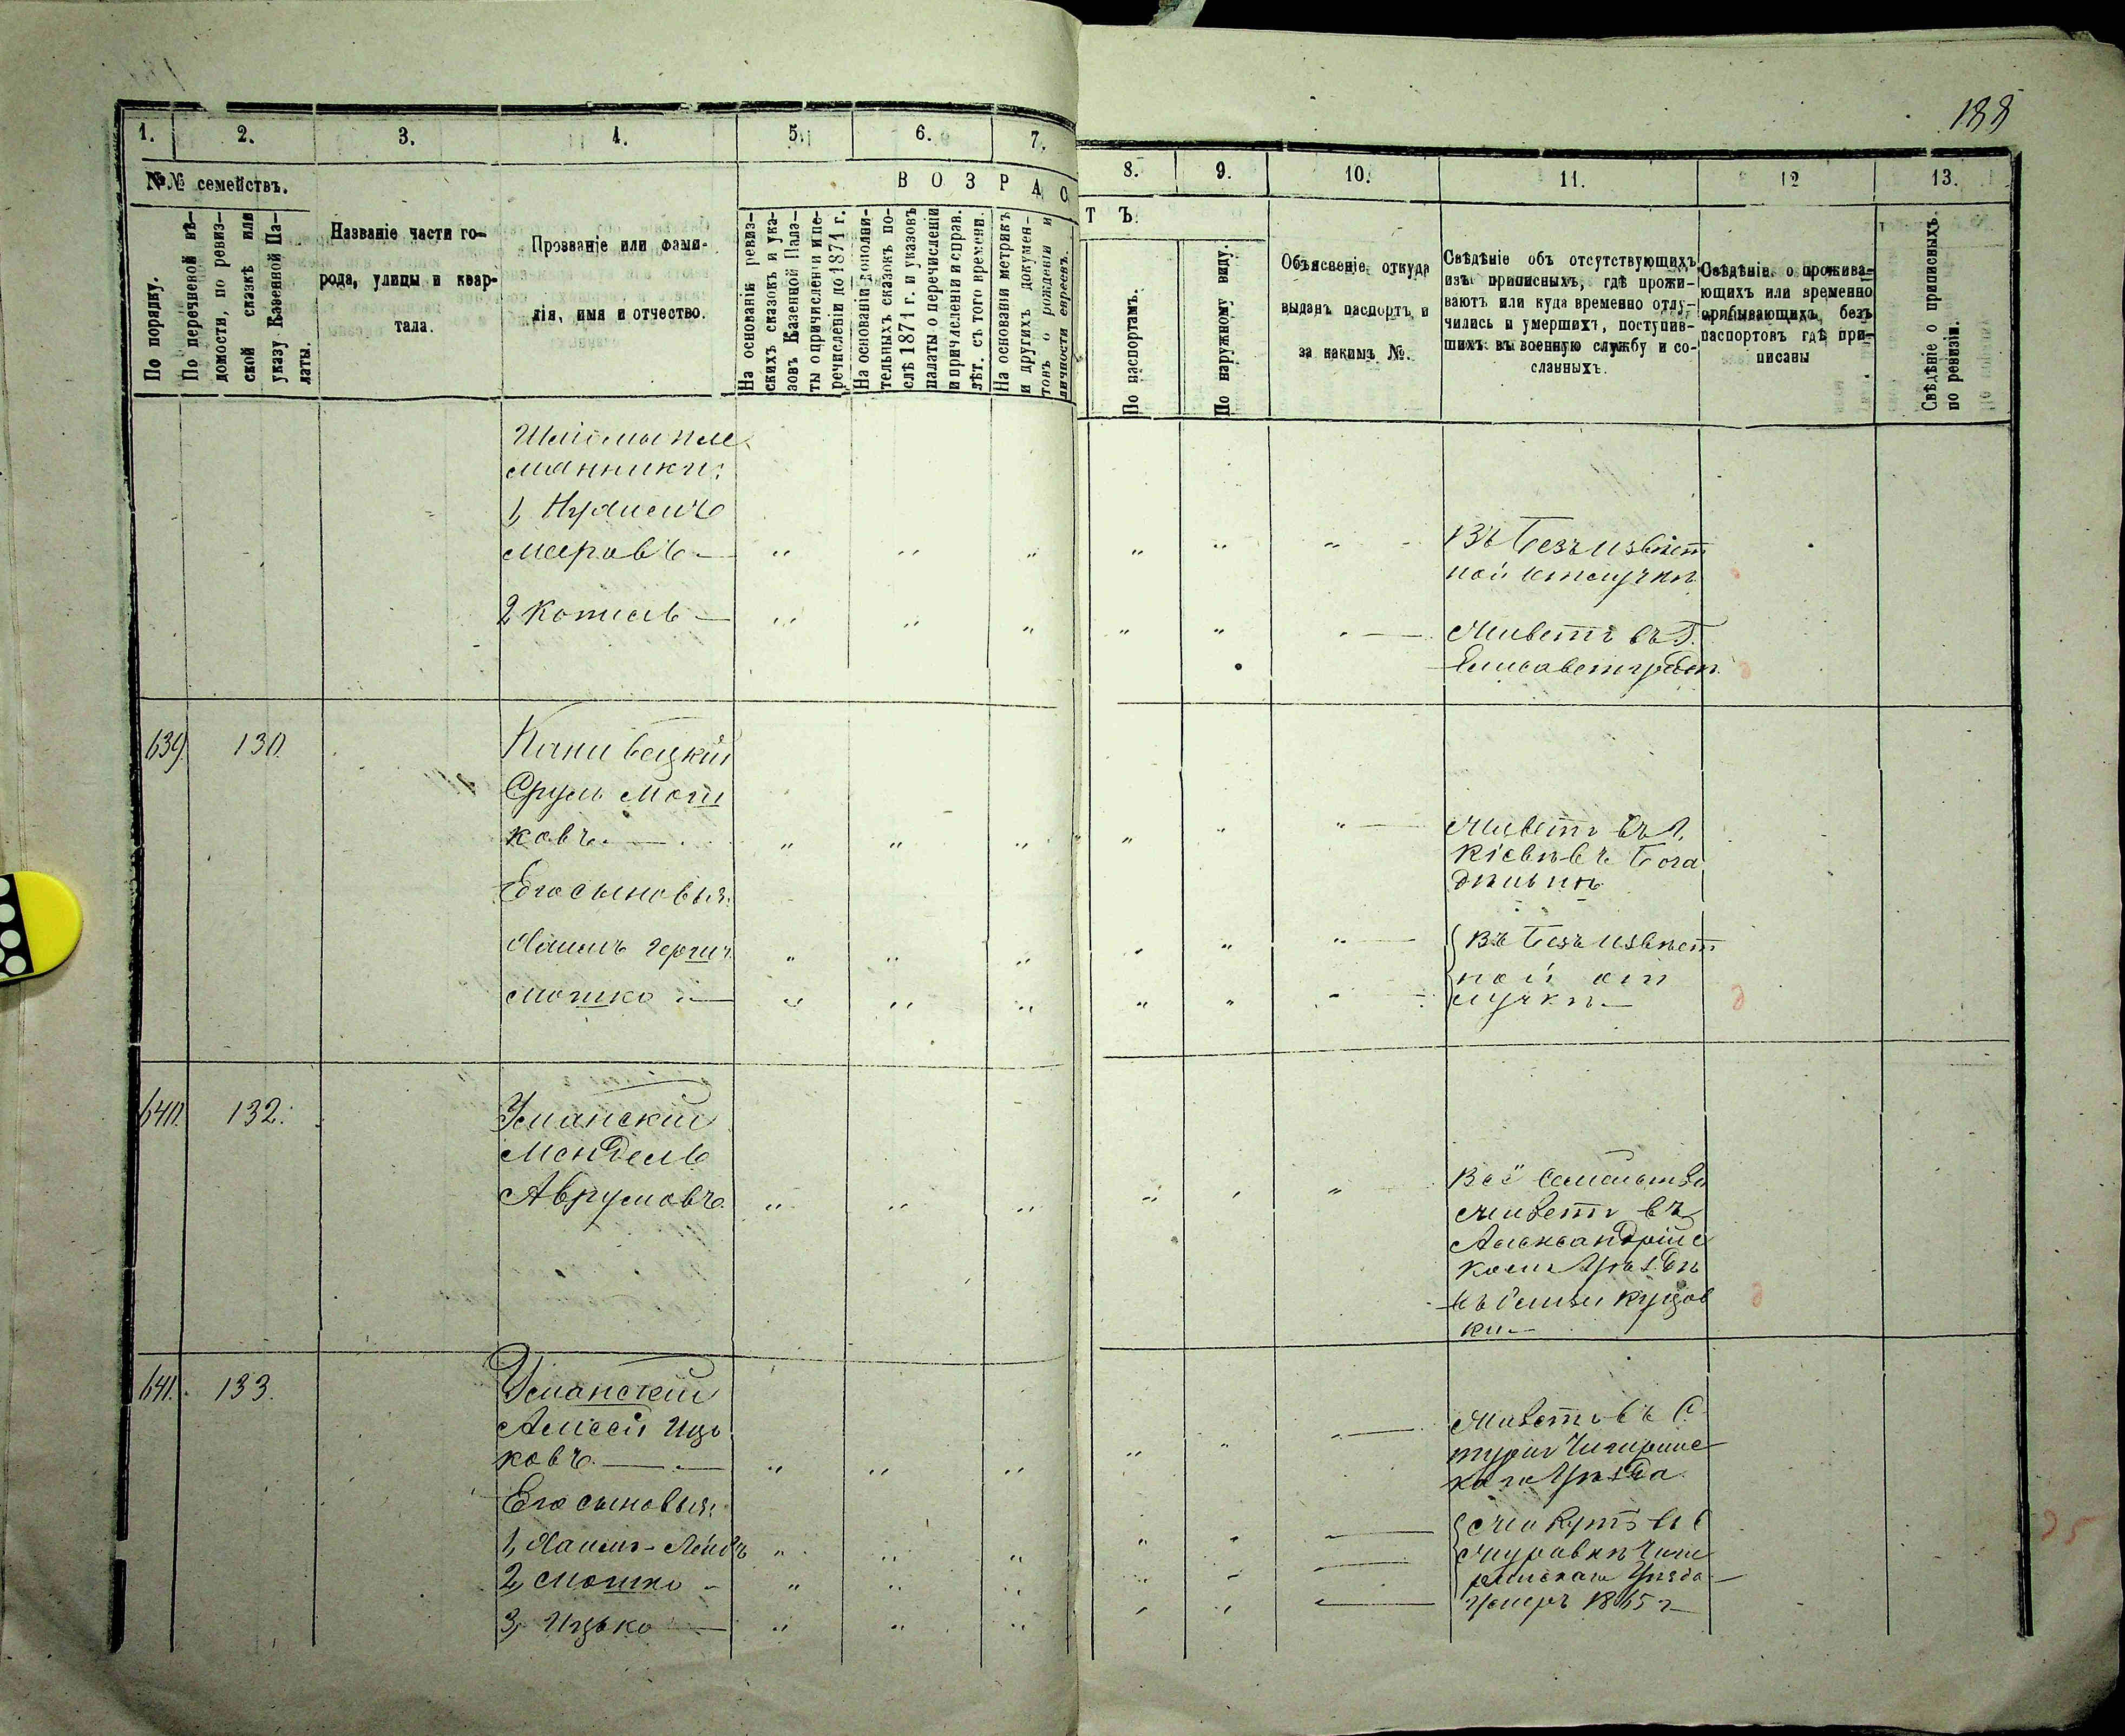 188
1. 2. 3. 4. 5. 6. 7. 8. 9. 10. 11. 12 13.
№№ семействъ.
ВОЗРАСТЪ.
По порядку.
По перечневой вѣ-
домости, по ревиз-
ской сказкѣ или
указу Казенной Па-
латы.
Названіе части го-
рода, улицы и квар-
тала.
Прозваніе или фами-
лія, имя и отчество.
На основаніи ревиз-
скихъ сказокъ и ука-
зовъ Казенной Пала-
ты о причисленіи и пе-
речисленіи до 1871 г.
На основаніи дополни-
тельныхъ сказокъ по-
слѣ 1871 г. и указовъ
палаты о перечисленіи
и причисленіи и справ.
лѣт. съ того времени.
На основаніи метрикъ
и другихъ докумен-
товъ о рожденіи и
личности евреевъ.
По паспортамъ.
По наружному виду.
Объясненіе откуда
выданъ паспортъ и
за какимъ №.
Свѣдѣніе объ отсутствующихъ
изъ приписныхъ, гдѣ прожи-
ваютъ или куда временно отлу-
чились и умершихъ, поступив-
шихъ въ военную службу и со-
сланныхъ.
Свѣдѣнія о прожива-
ющихъ или временно
прибывающихъ безъ
паспортовъ гдѣ при-
писаны
Свѣдѣніе о приписныхъ
по ревизіи.
пле
мянники:
1, Нусинъ
Мееровъ — " " " " " " Въ безъизвѣст
ной отлучкѣ
2 Копель — " " " " " " Живетъ въ Г.
Елисаветградѣ
639. 130. Каневецкій
Сруль Мош
ковъ — " " " " " " Живетъ въ г.
Кіевѣ въ бога
дѣльнѣ
Его сыновья:
Хаимъ Герш " " " " " " Въ безъ извѣст
ной от
Мошко — " " " " " " лучкѣ —
640. 132. Уманскій
Мендель
Аврумовъ " " " " " " Всё семейство
живетъ въ
Александрійс
комъ уѣздѣ
Куцов
ки
641. 133. Уманскій
Алксей Ицо
ковъ — " " " " " Живетъ въ С.
Чигиринс
каго уѣзда
Его сыновья:
1, Хаимъ-Лейбъ " " " " " — Живутъ въ С
Муравкѣ Чиги
2, Мошко - " " " " " — ринскаго уѣзда
3, Ицько — " " " " " — умеръ 1865 г